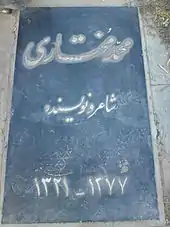 محمد مختاری
شاعر و نویسنده
۱۳۲۱ - ۱۳۷۷